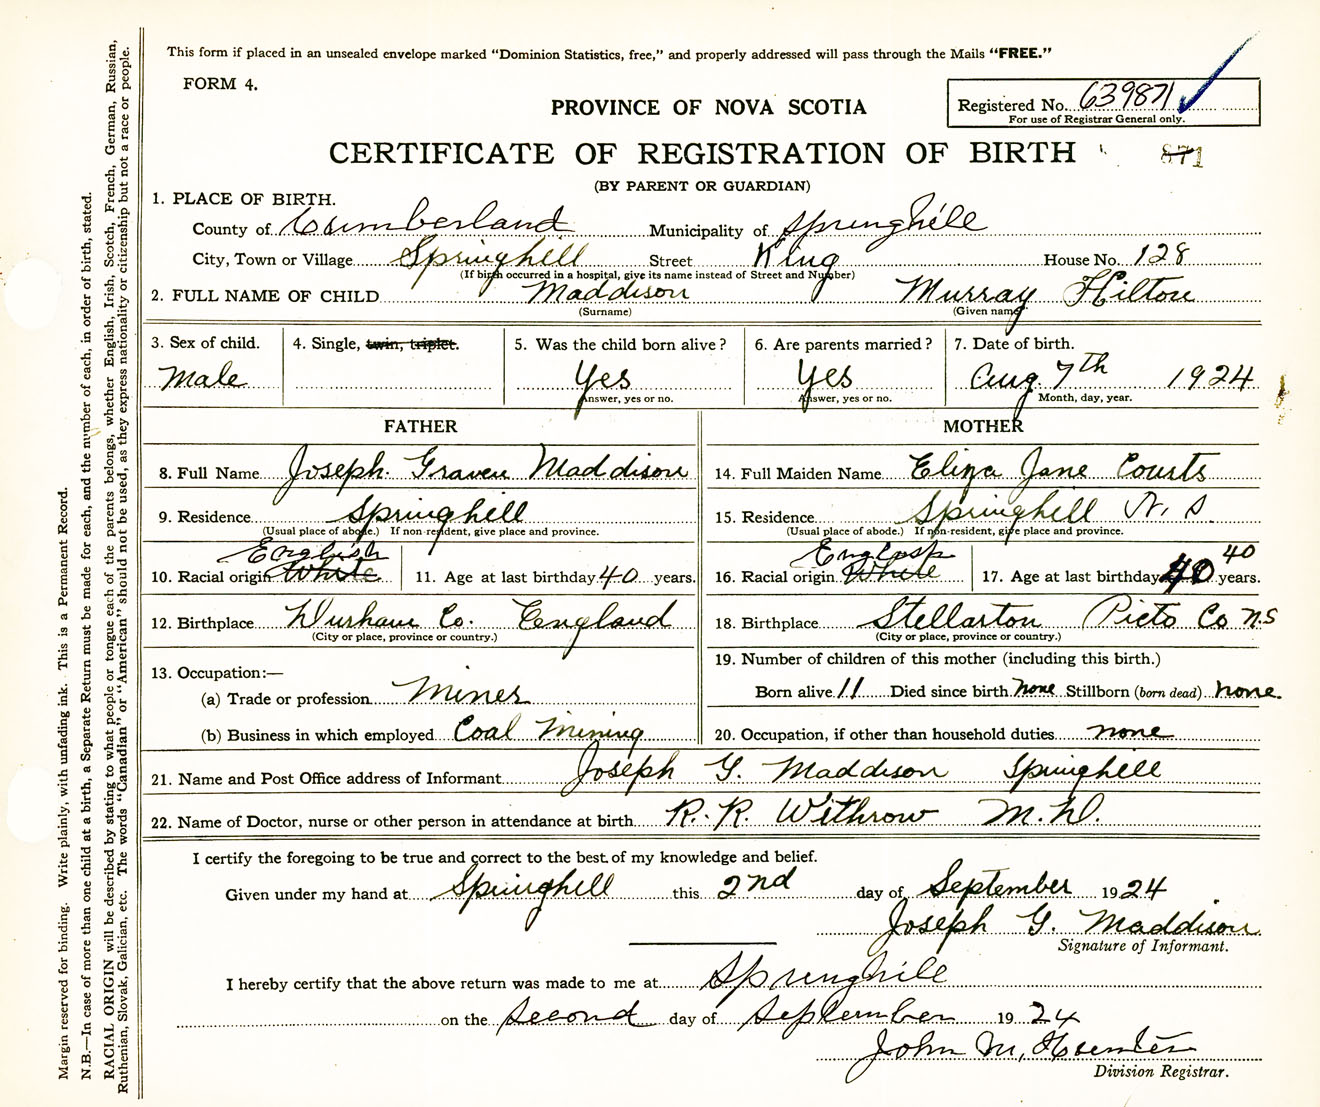 This form if placed in an unsealed envelope marked “Dominion Statistics, free,” and properly addressed will pass through the Mails “FREE.”
FORM 4.
PROVINCE OF NOVA SCOTIA
Registered No. 639871
For use of Registrar General only.
CERTIFICATE OF REGISTRATION OF BIRTH
871
(BY PARENT OR GUARDIAN)
1. PLACE OF BIRTH.
County of Cumberland Municipality of Springhill
City, Town or Village Springhill Street King House No. 128
(If birth occurred in a hospital, give its name instead of Street and Number)
2. FULL NAME OF CHILD Maddison Murray Hilton
(Surname) (Given name)
3. Sex of child. 4. Single, twin, triplet. 5. Was the child born alive? 6. Are parents married? 7. Date of birth.
Male Yes Yes Aug. 7th 1924
Answer, yes or no. Answer, yes or no. Month, day, year.
FATHER MOTHER
8. Full Name Joseph Graven Maddison 14. Full Maiden Name Eliza Jane Courts
9. Residence Springhill 15. Residence Springhill N. S.
(Usual place of abode.) If non-resident, give place and province. (Usual place of abode.) If non-resident, give place and province.
English English 40
10. Racial origin White 11. Age at last birthday 40 years. 16. Racial origin White 17. Age at last birthday 40 years.
12. Birthplace Durham Co. England 18. Birthplace Stellarton Picto Co N.S
(City or place, province or country.) (City or place, province or country.)
13. Occupation:— 19. Number of children of this mother (including this birth.)
(a) Trade or profession Miner Born alive 11 Died since birth none Stillborn (born dead) none.
(b) Business in which employed Coal Mining 20. Occupation, if other than household duties none
21. Name and Post Office address of Informant Joseph G. Maddison Springhill
22. Name of Doctor, nurse or other person in attendance at birth R. R. Withrow M.D.
I certify the foregoing to be true and correct to the best of my knowledge and belief.
Given under my hand at Springhill this 2nd day of September 1924
Joseph G. Maddison
Signature of Informant.
I hereby certify that the above return was made to me at Springhill
on the second day of September 1924
John M. Hunter
Division Registrar.
Margin reserved for binding. Write plainly, with unfading ink. This is a Permanent Record.
N.B.—In case of more than one child at a birth, a Separate Return must be made for each, and the number of each, in order of birth, stated.
RACIAL ORIGIN will be described by stating to what people or tongue each of the parents belongs, whether English, Irish, Scotch, French, German, Russian,
Ruthenian, Slovak, Galician, etc. The words “Canadian” or “American” should not be used, as they express nationality or citizenship but not a race or people.